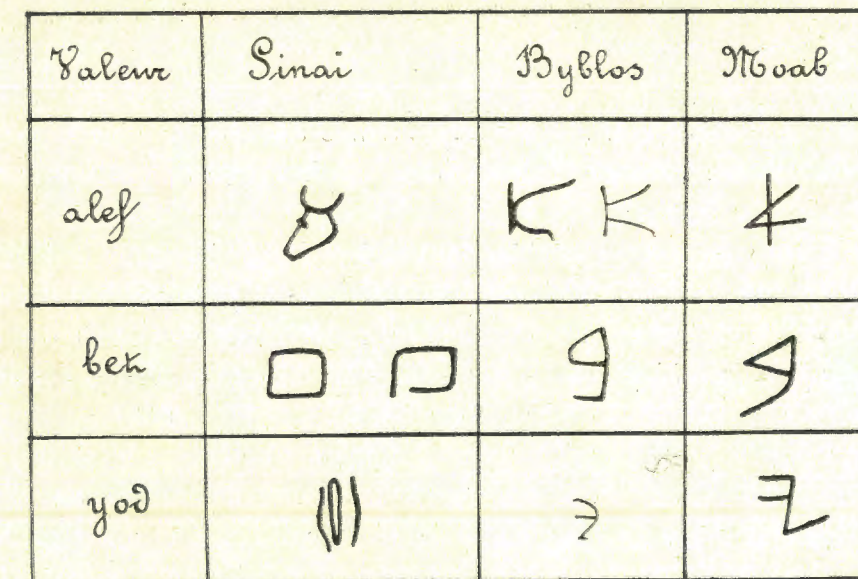 Valeur Sinai Byblos Moab
alef
bet
yod